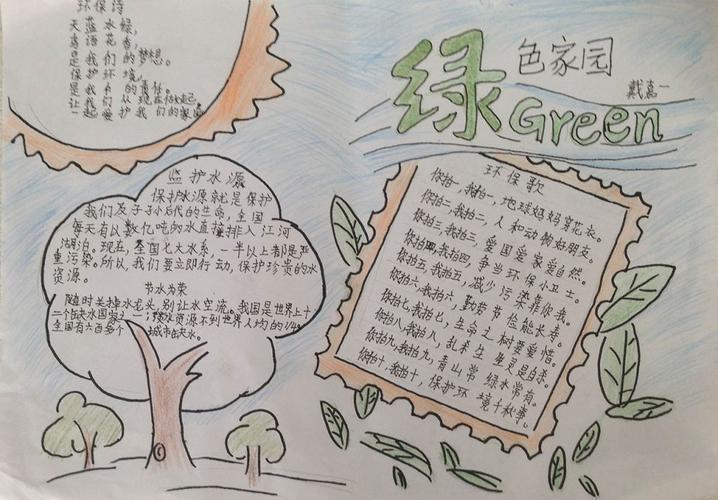 环保诗
天蓝水绿,
鸟语花香,
是我们的梦想。
保护环境,
是我们的责任。
让我们从现在做起
一起爱护我们的家园
绿
色家园
戴嘉一
Green
监护水源
保护水源就是保护
我们及子子孙后代的生命,全国
每天有以数亿吨的水直接排入江河
湖泊。现在,全国七大水系,一半以上都是严
重污染。所以,我们要立即行动,保护珍贵的水
资源。
节水为荣
随时关掉水龙头,别让水空流。我国是世界上十
二个缺水国家之一;淡水资源不到世界人均的1/4。
全国有六百多个城市缺水。
环保歌
你拍一,我拍一,地球妈妈穿花衣。
你拍二,我拍二,人和动物好朋友。
你拍三,我拍三,爱国爱家爱自然。
你拍四,我拍四,争当环保小卫士。
你拍五,我拍五,减少污染靠你我。
你拍六,我拍六,勤劳节俭能长寿。
你拍七,我拍七,生命之树要爱惜。
你拍八,我拍八,乱杀生灵是自杀。
你拍九,我拍九,青山常绿水常有。
你拍十,我拍十,保护环境千秋事。